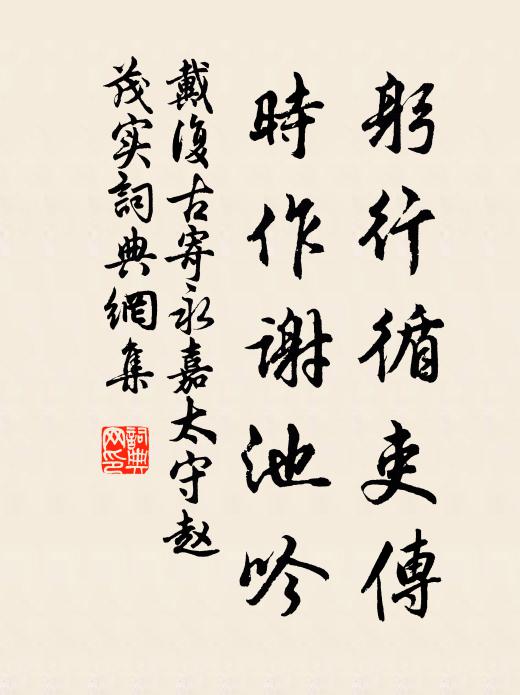 躬行循吏傳
時作謝池吟
戴復古寄永嘉太守赵
茂实詞典網集
詞典
网印